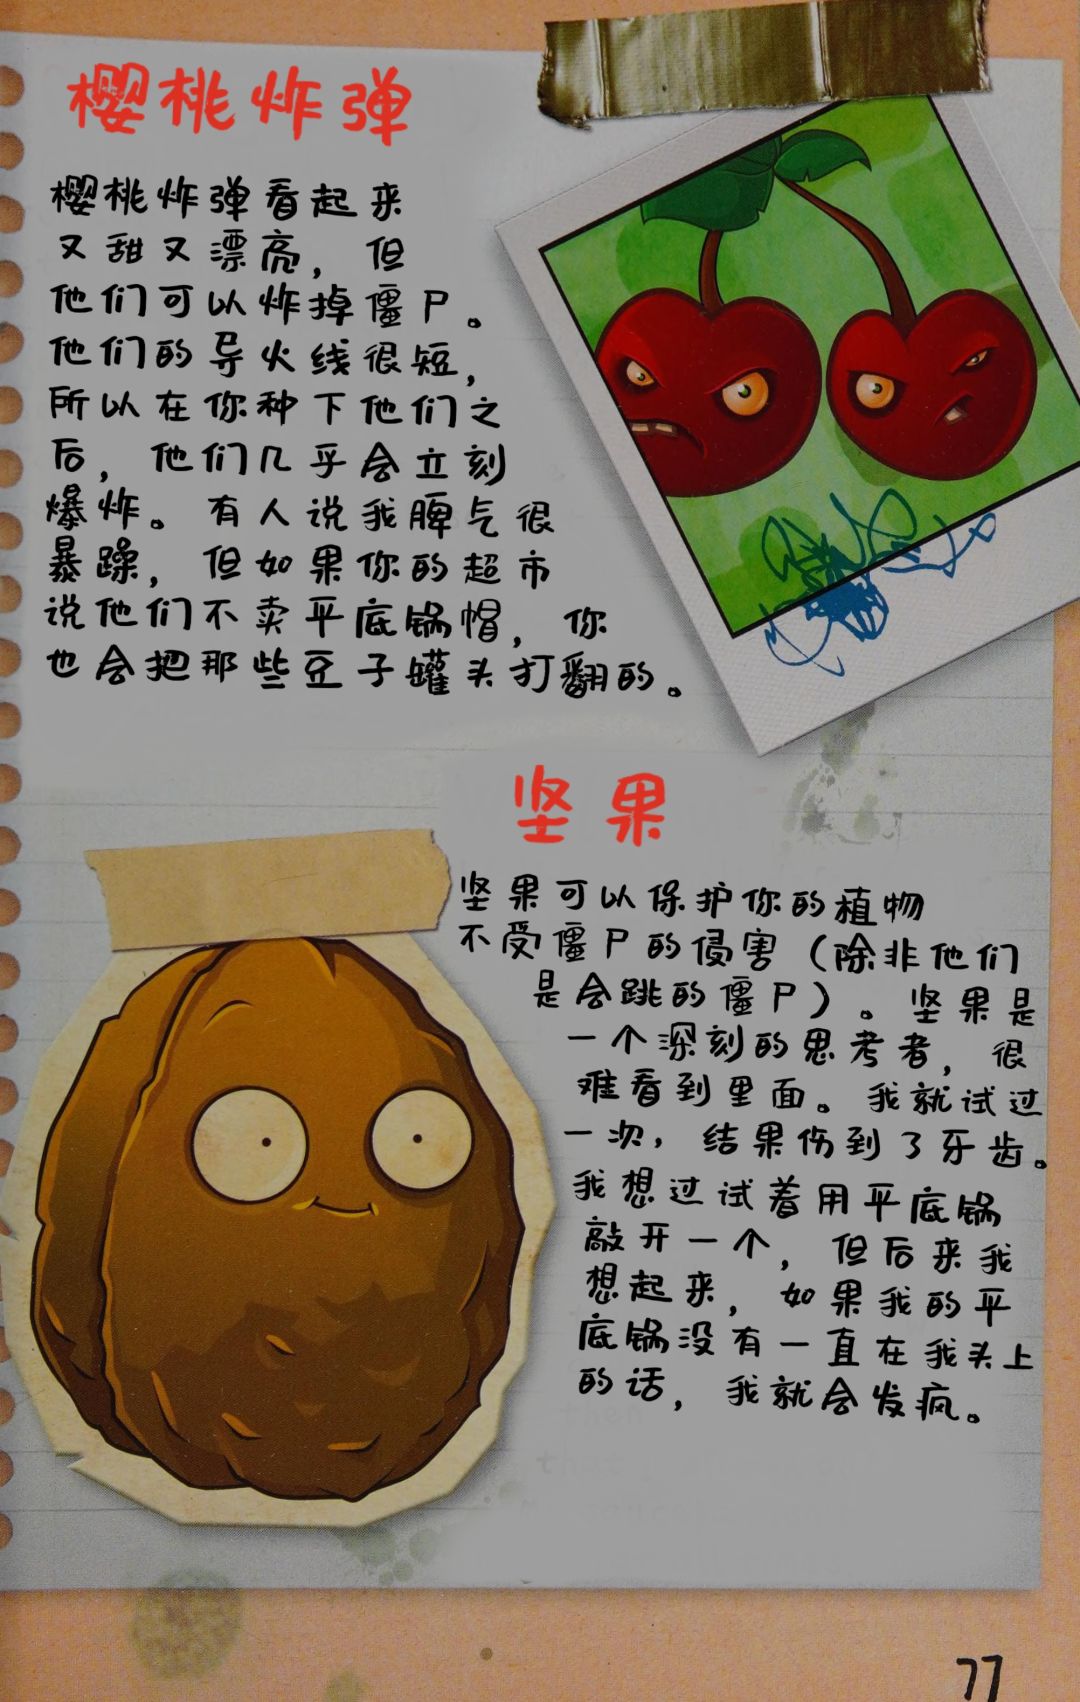 樱桃炸弹
樱桃炸弹看起来
又甜又漂亮，但
他们可以炸掉僵尸。
他们的导火线很短，
所以在你种下他们之
后，他们几乎会立刻
爆炸。有人说我脾气很
暴躁，但如果你的超市
说他们不卖平底锅帽，你
也会把那些豆子罐头打翻的。
坚果
坚果可以保护你的植物
不受僵尸的侵害（除非他们
是会跳的僵尸）。坚果是
一个深刻的思考者，很
难看到里面。我就试过
一次，结果伤到了牙齿。
我想过试着用平底锅
敲开一个，但后来我
想起来，如果我的平
底锅没有一直在我头上
的话，我就会发疯。
then
77